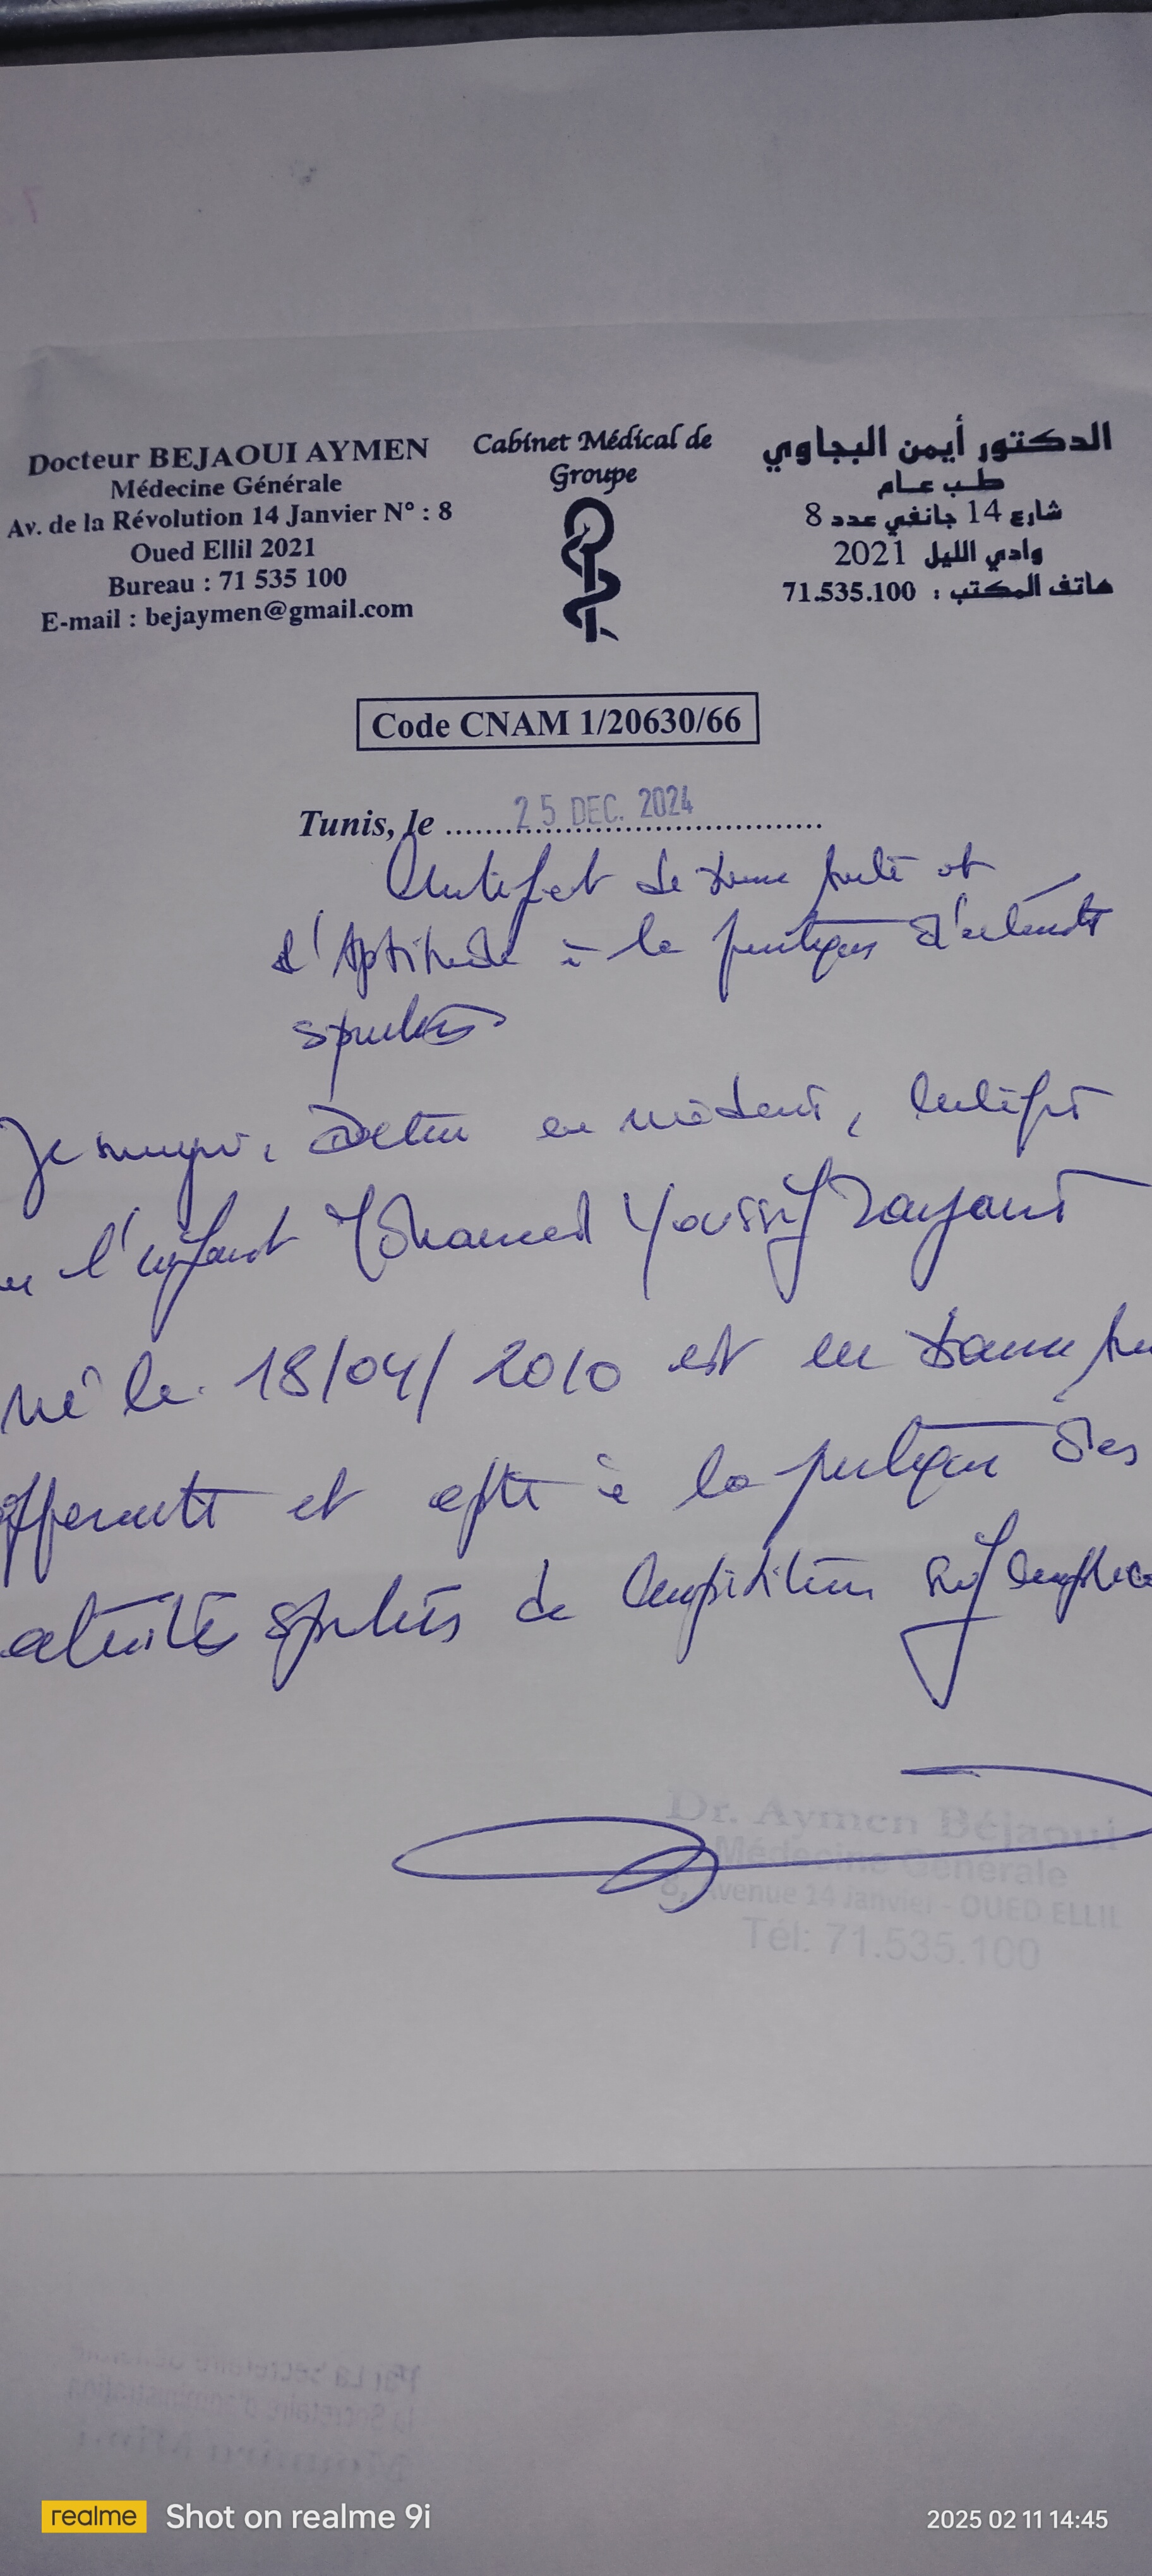 Docteur BEJAOUI AYMEN
Médecine Générale
Av. de la Révolution 14 Janvier N° : 8
Oued Ellil 2021
Bureau : 71 535 100
E-mail : bejaymen@gmail.com
Cabinet Médical de
Groupe
الدكتور أيمن البجاوي
طب عام
شارع 14 جانفي عدد 8
وادي الليل 2021
هاتف المكتب : 71.535.100
Code CNAM 1/20630/66
Tunis, le 25 DEC. 2024
Certificat de bonne santé et
d'Aptitude à la pratique d'activités
sportives
Je soussigné, Docteur en médecine, certifie
l'enfant Mohamed Youssef
né le 18/04/2010 est en bonne
et apte à la pratique des
activités sportives de compétition
Dr. Aymen Béjaoui
Médecine Générale
8, Avenue 14 Janvier - OUED ELLIL
Tél: 71.535.100
realme Shot on realme 9i
2025 02 11 14:45